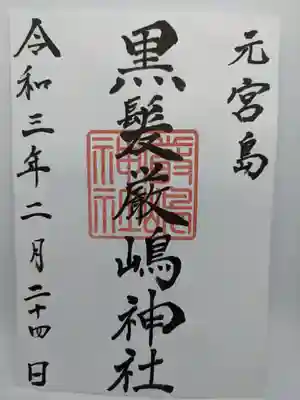 元宮島
黒髪厳嶋神社
厳嶋
神社
令和三年二月二十四日